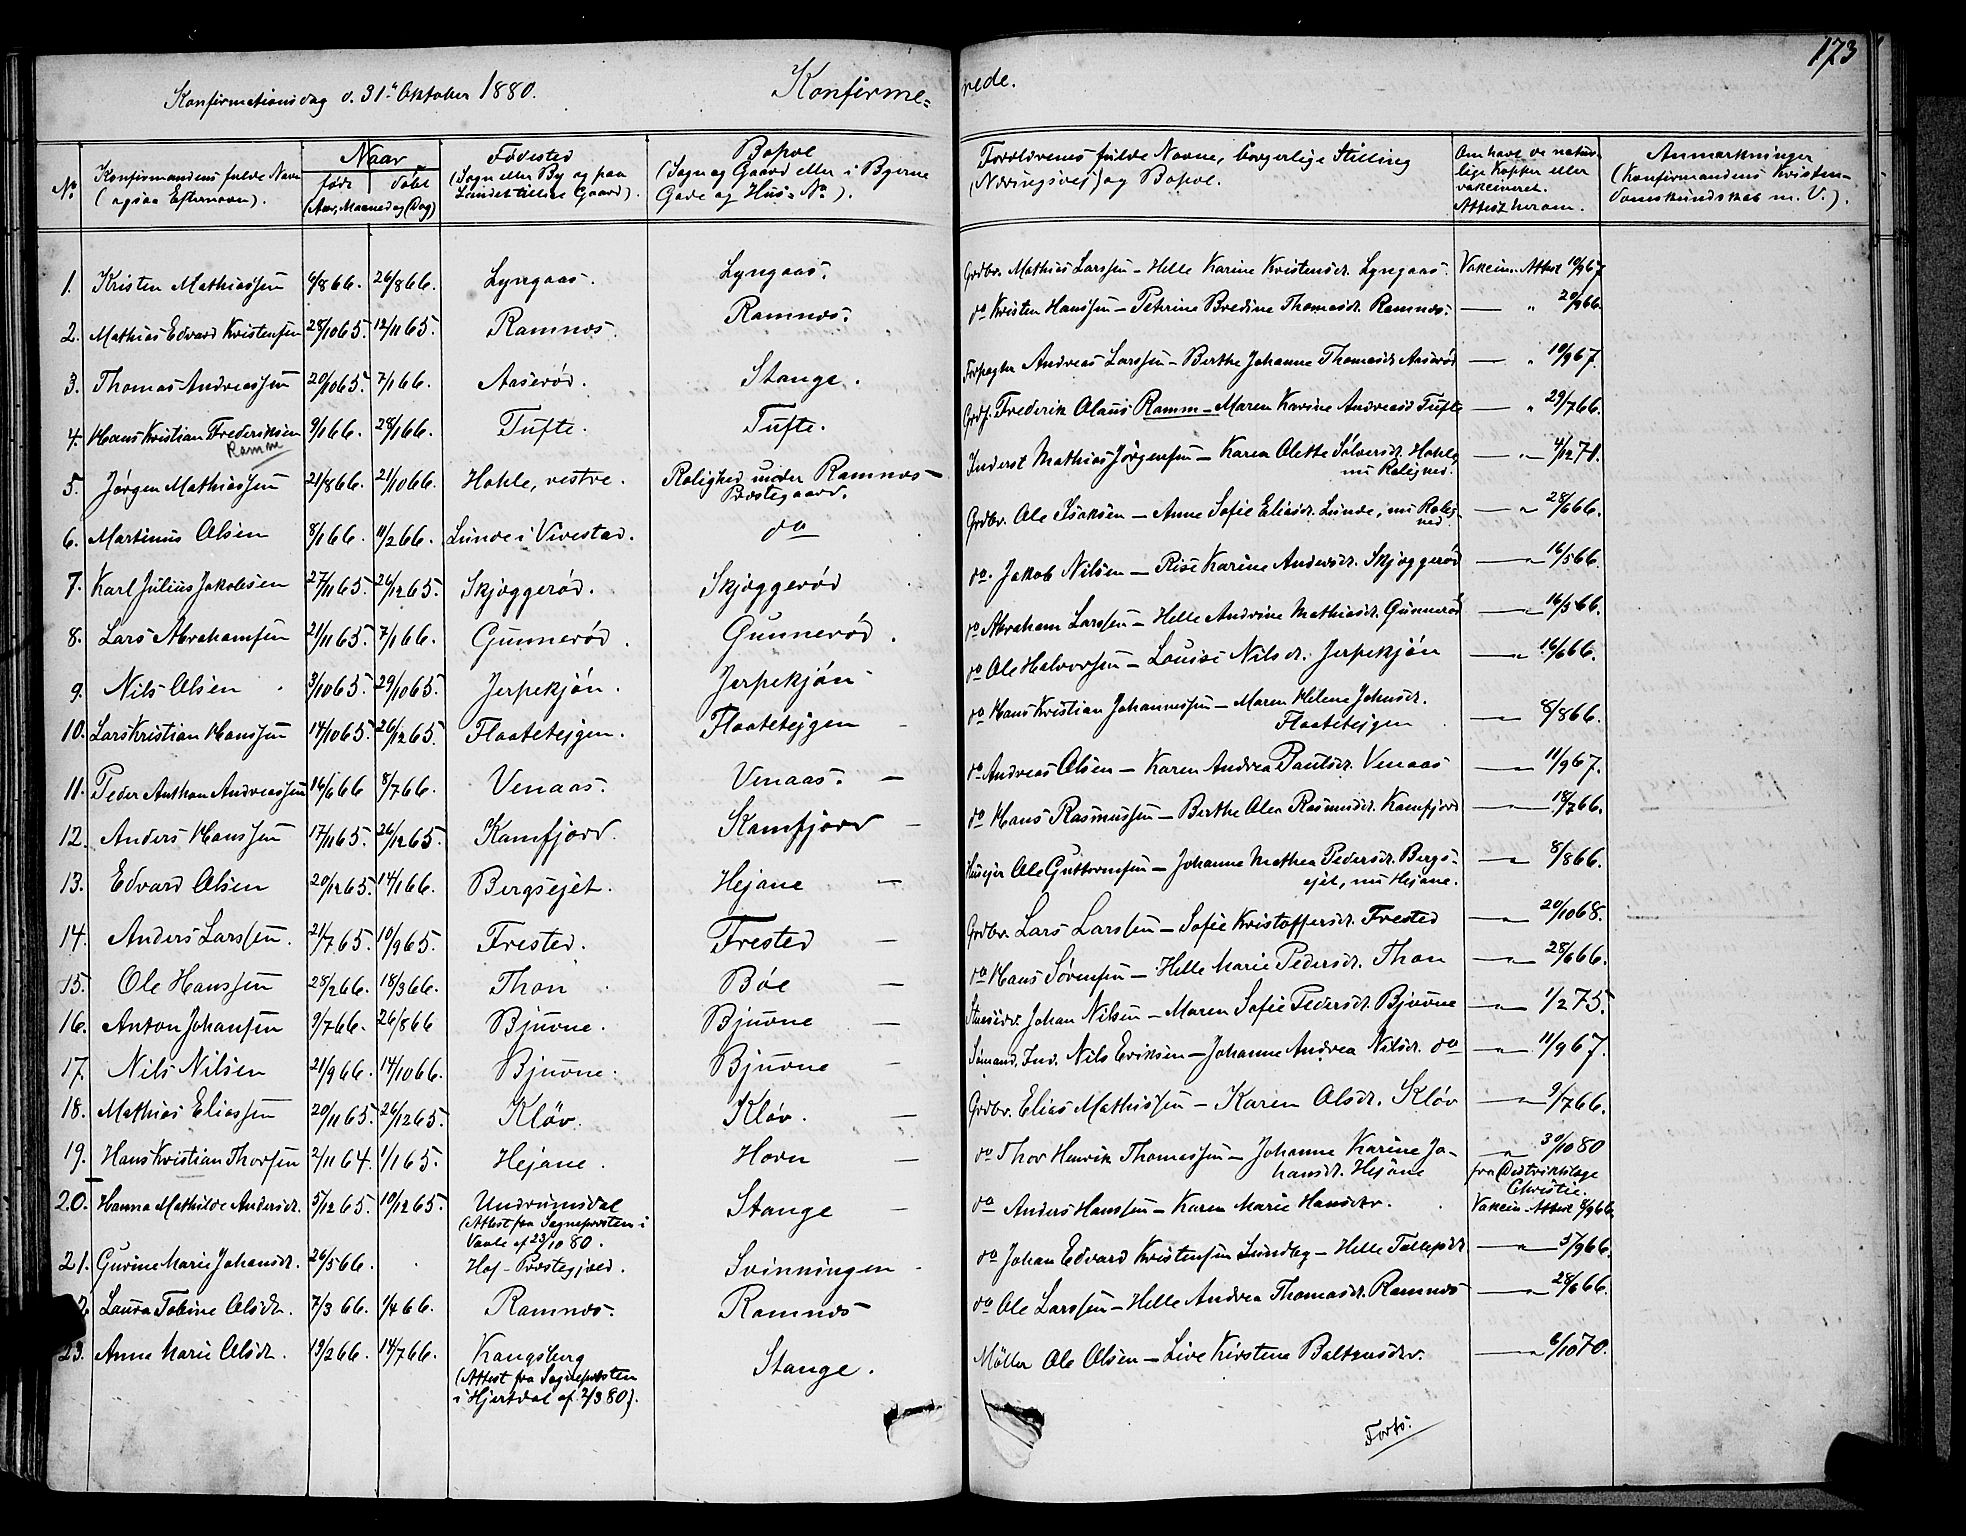 173
Konfirmationsdag d. 31te Oktober 1880.
Konfirme=
rede.
No
Konfirmandens fulde Navn
(ogsaa Efternavn).
Naar
født
døbt
(Aar, Maaned og Dag)
Fødested
(Sogn eller By og paa
Landet tillige Gaard).
Bopæl
(Sogn og Gaard eller i Byerne
Gade og Hus-No).
Forældrenes fulde Navne, borgerlige Stilling
(Næringsvej) og Bopæl.
Om havt de natur-
lige Kopper eller
vakcineret.
Attest herom.
Anmærkninger
(Konfirmandens Kristen-
domskundskab m. V.).
1. Kristen Mathiassen 6/866. 26/866. Lyngaas. Lyngaas. Grdbr. Mathias Larssen - Helle Karine Kristensdr. Lyngaas. Vakcin. Attest 10/967.
2. Mathias Edvard Kristensen 28/1065. 12/1165. Ramnæs. Ramnæs. do Kristen Hanssen - Petrine Bredine Thomasdr. Ramnæs. — " 20/966.
3. Thomas Andreassen 20/1065. 7/166. Aaserød. Stange. Forpagter Andreas Larssen - Berthe Johanne Thomasdr Aaserød — " 10/967.
4. Hans Kristian Frederiksen 9/166. 28/166. Tufte. Tufte. Grdf. Frederik Olaus Ramm - Maren Karine Andreasd Tufte — " 29/766.
Ramm
5. Jørgen Mathiassen 21/866. 21/1066. Hohle, vestre. Rolighed under Ramnæs Inderst Mathias Jørgensen - Karen Olette Sølversdr. Hohle — " 4/1271.
Præstegaard.
nu Rolighed.
6. Martinus Olsen 8/166. 11/266. Lunde i Vivestad. do Grdbr. Ole Isaksen - Anne Sofie Eliasdr. Lunde, nu Rolig- — " 28/666.
hed.
7. Karl Julius Jakobsen 27/1165. 26/1265. Skjæggerød. Skjæggerød do. Jakob Nilsen - Rise Karine Andersdr. Skjæggerød — " 16/566.
8. Lars Abrahamsen 21/1165. 7/166. Gunnerød. Gunnerød. do Abraham Larssen - Helle Andrine Mathiasdr. Gunnerød — " 16/566.
9. Nils Olsen 3/1065. 29/1065. Jerpekjøn. Jerpekjøn do Ole Halvorsen - Louise Nilsdr. Jerpekjøn — " 16/666.
10. Lars Kristian Hanssen 14/1065. 26/1265. Flaatetejgen. Flaatetejgen do Hans Kristian Johannessen - Maren Helene Johnsdr. — " 8/866.
Flaatetejgen
11. Peder Anthon Andreassen 16/666 8/766. Venaas. Venaas. — do Andreas Olsen - Karen Andrea Paulsdr. Venaas — " 11/967.
12. Anders Hanssen 17/1165. 26/1265. Kamfjord. Kamfjord — do Hans Rasmussen - Berthe Olea Rasmusdr. Kamfjord — " 18/766.
13. Edvard Olsen 20/1265. 14/166. Bergsejet. Hejane — Husejer Ole Guttormsen - Johanne Mathea Pedersdr. Bergs- — " 8/866.
ejet, nu Hejane.
14. Anders Larssen. 21/765. 10/965. Frested. Frested — Grdbr. Lars Larssen - Sofie Kristoffersdr. Frested — " 20/1068.
15. Ole Hanssen 28/266. 18/366. Thon Bøe — do Hans Sørensen - Helle Marie Pedersdr. Thon — " 28/666.
16. Anton Johansen 9/766. 26/866 Bjuvne. Bjuvne — Johan Nilsen - Maren Sofie Pedersdr. Bjuvne — " 1/275.
17. Nils Nilsen 21/966. 14/1066. Bjuvne. Bjuvne — Sømand. Ind. Nils Eriksen - Johanne Andrea Nilsdr. do — " 11/967.
18. Mathias Eliassen 20/1165. 26/1265. Kløv. Kløv. — Grdbr. Elias Mathissen - Karen Olsdr. Kløv — " 9/766.
19. Hans Kristian Thorsen 2/1164. 1/165. Hejane. Horn — do Thor Henrik Thomassen - Johanne Karine Jo- " 30/1080
hansdr. Hejane fra Distriktslæge
Christie.
20. Hanna Mathilde Andersdr. 5/1265. 10/1265. Undrumsdal Stange — do Anders Hanssen - Karen Marie Hansdtr. Vakcin. Attest 8/966.
(Attest fra Sognepresten i
Vaale af 23/1080.
21. Gurine Marie Johansdr. 26/566. Hof-Præstegjeld. Svinningen do Johan Edvard Kristensen Lundeg - Helle Tollefsdr — " 5/966.
Laura Tobine Olsdr. 7/366. 1/466. Ramnæs. Ramnæs do Ole Larssen - Helle Andrea Thomasdr. Ramnæs — " 28/666.
23. Anne Marie Olsdr. 19/266. 14/766. Kongsberg Stange. Møller Ole Olsen - Live Kirstine Baltzersdtr. — " 6/1070.
(Attest fra Sognepresten
i Hjertdal af 2/380).
Forts.